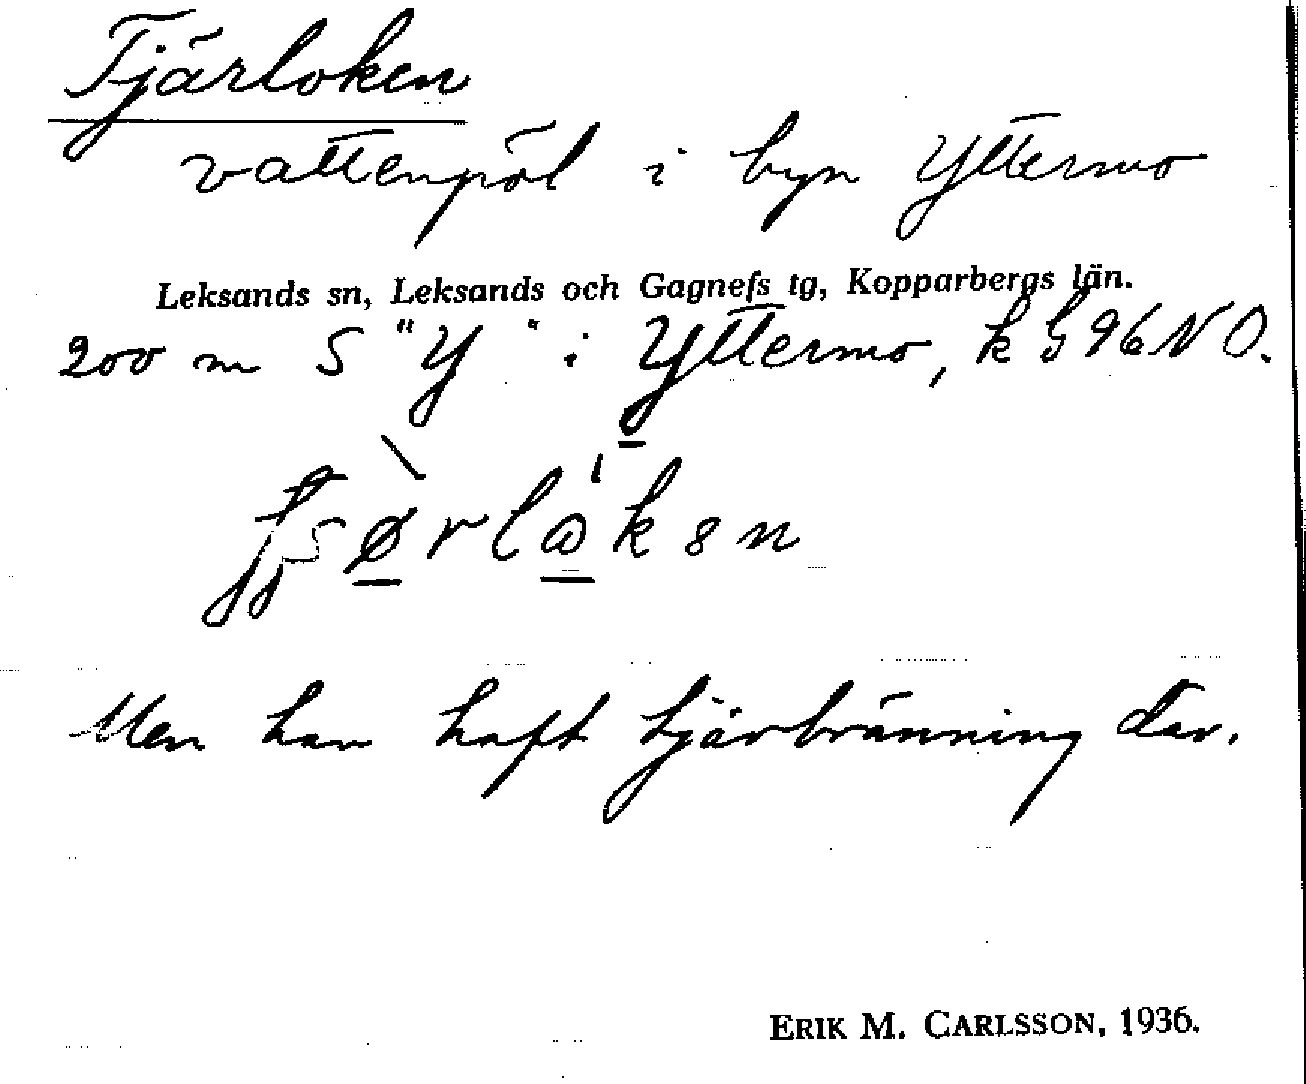 Tjärloken
vattenpöl i byn Yttermo
Leksands sn, Leksands och Gagnefs tg, Kopparbergs län.
200 m S "Y" i Yttermo, k G 96 NO.
Men har haft tjärbränning där.
ERIK M. CARLSSON, 1936.